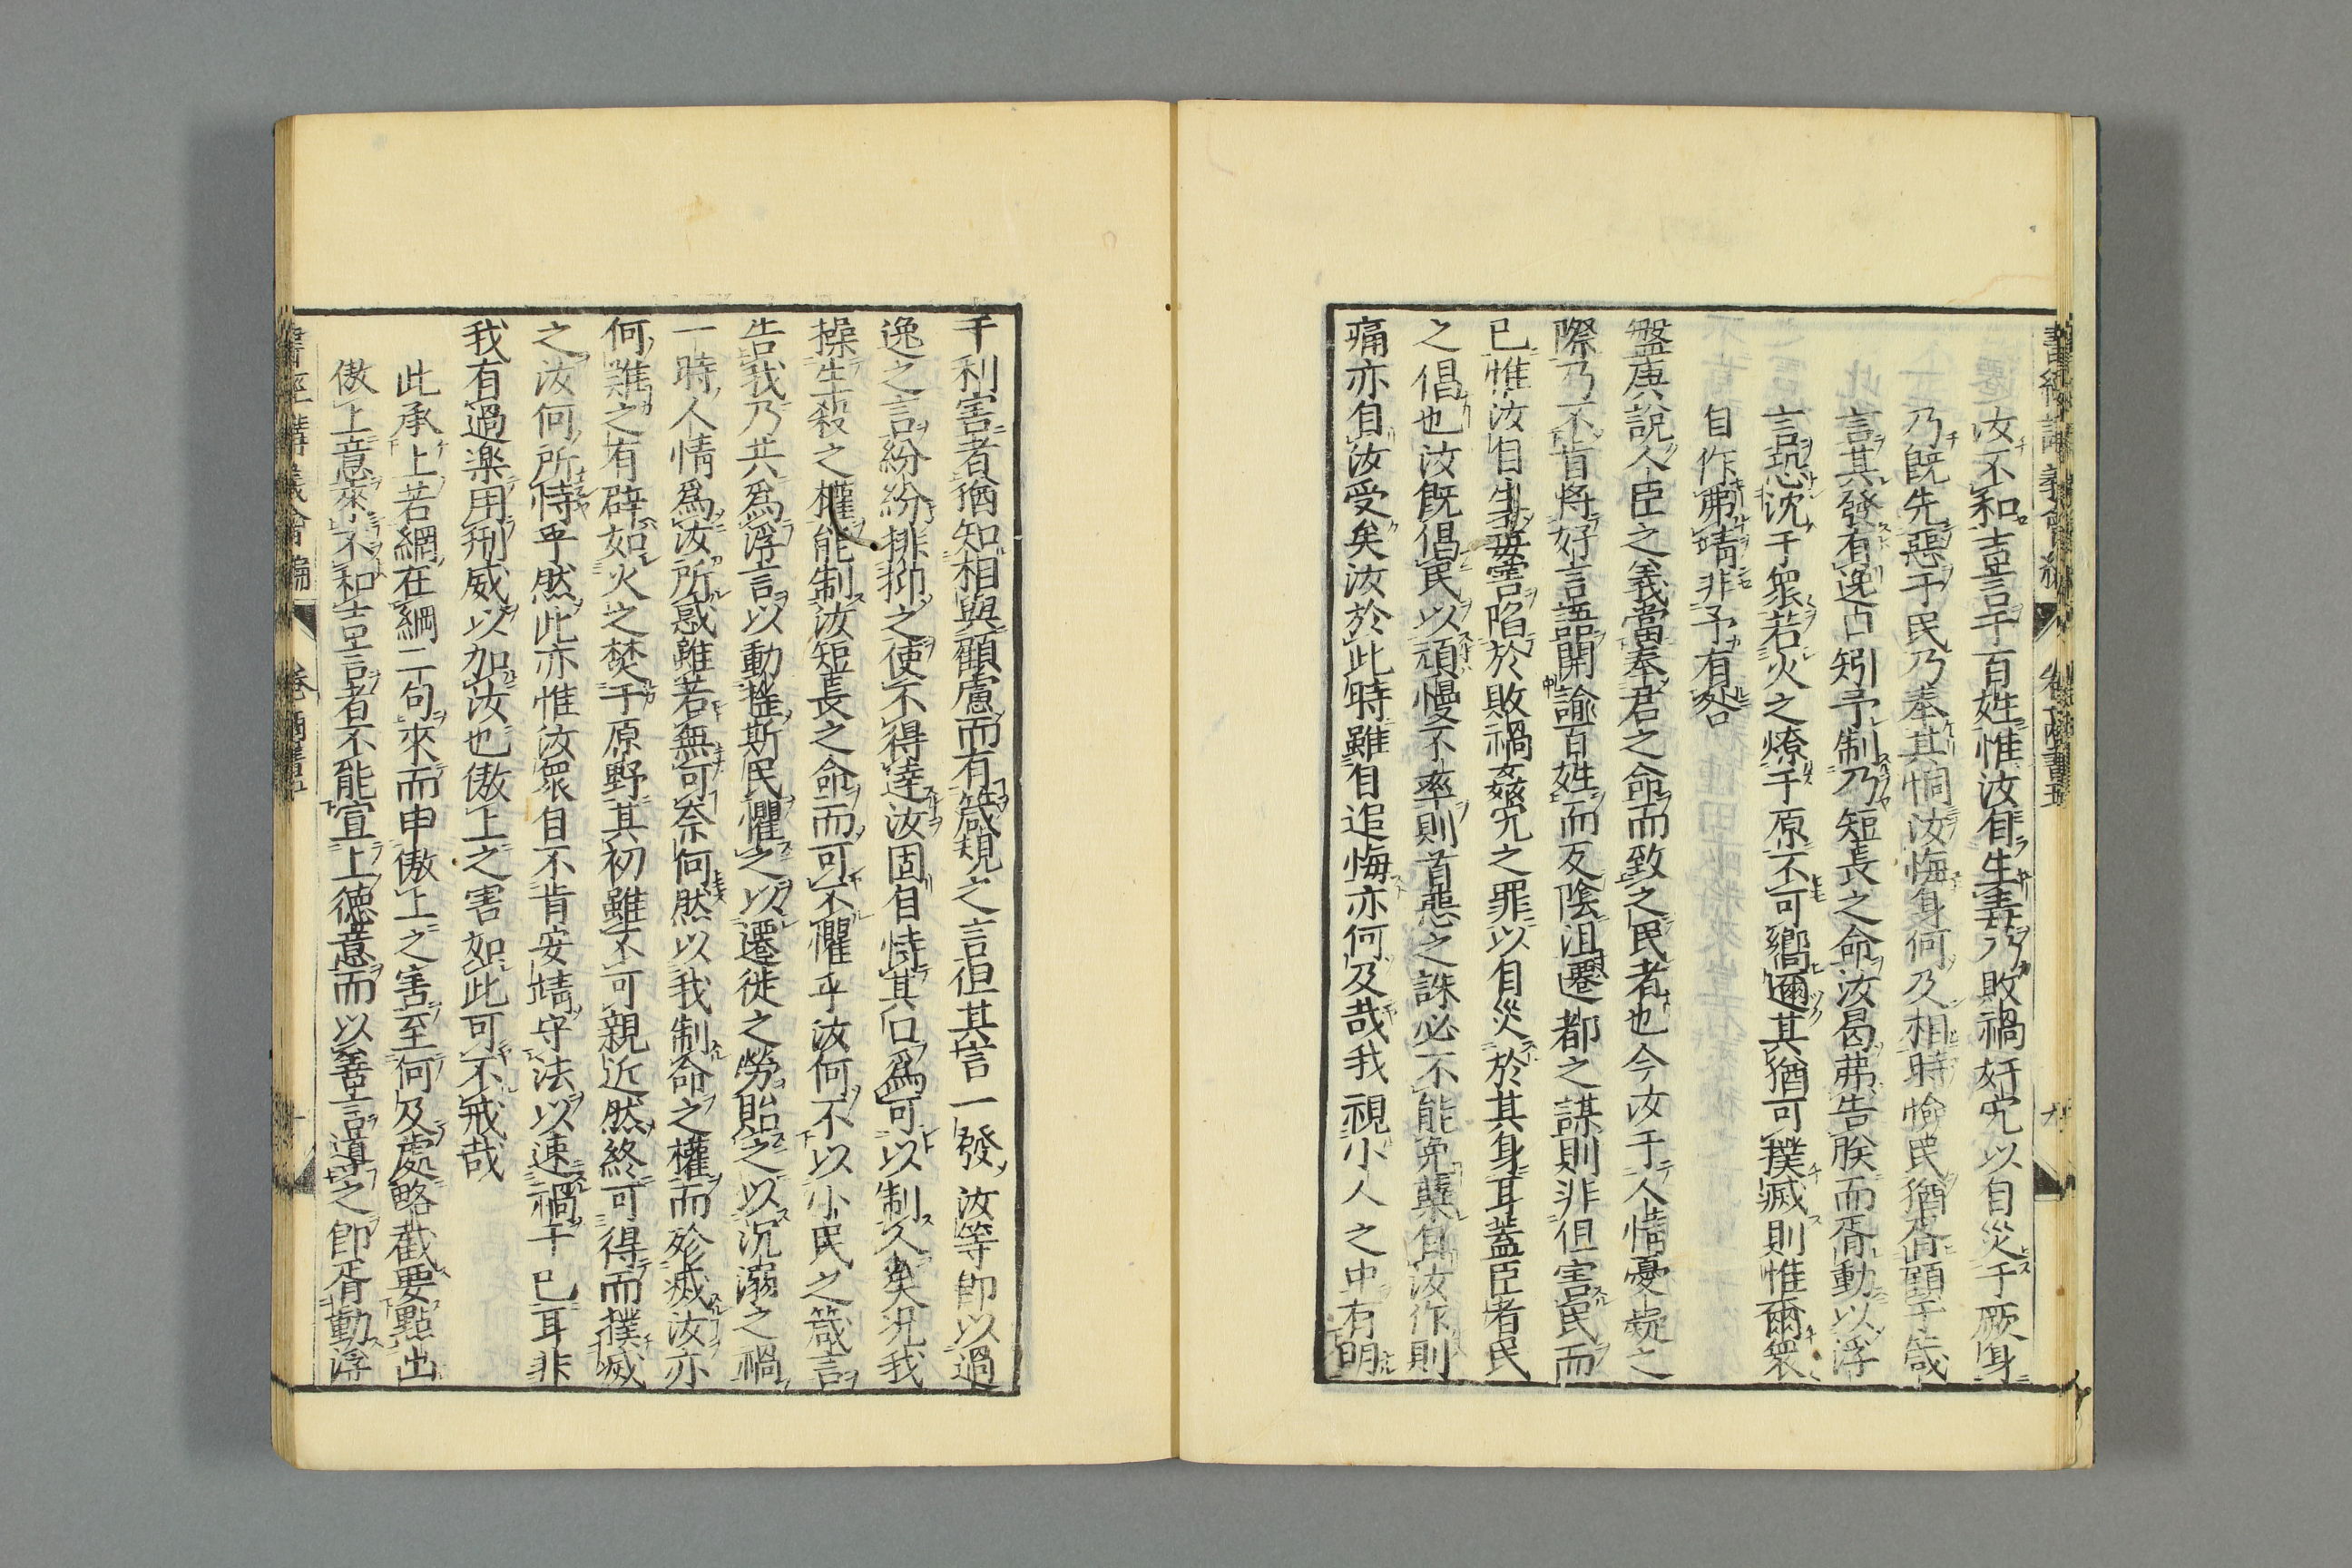 書經講義會編 卷 商書五 九
汝不和吉言于百姓惟汝自生毒乃敗禍奸宄以自災于厥身
乃旣先惡于民乃奉其恫汝悔身何及相時憸民猶胥顧于箴
言其發有逸口矧予制乃短長之命汝曷弗告朕而胥動以浮
言恐沈于衆若火之燎于原不可嚮邇其猶可撲滅則惟爾衆
自作弗靖非予有咎
盤庚說人臣之義當奉君之命而致之民者也今汝于人情憂疑之
際乃不肯將好言語開諭百姓而反陰沮遷都之謀則非但害民而
已惟汝自生毒害陷於敗禍姦宄之罪以自災於其身耳蓋臣者民
之倡也汝旣倡民以頑慢不率則首惡之誅必不能免孽自汝作則
痛亦自汝受矣汝於此時雖自追悔亦何及哉我視小人之中有明
于利害者猶知相與顧慮而有箴規之言但其言一發汝等卽以過
逸之言紛紛排抑之使不得達汝固自恃其口爲可以制人矣況我
操生殺之權能制汝短長之命而可不懼乎汝何不以小民之箴言
告我乃共爲浮言以動搖斯民懼之以遷徙之勞貽之以沉溺之禍
一時人情爲汝所惑雖若無可奈何然以我制命之權而殄滅汝亦
何難之有辟如火之焚于原野其初雖不可親近然終可得而撲滅
之汝何所恃乎然此亦惟汝衆自不肯安靖守法以速禍于已耳非
我有過樂用刑威以加汝也傲上之害如此可不戒哉
此承上若網在綱二句來而申傲上之害至何及處略截要點出
傲上意來不和吉言者不能宣上德意而以善言導之卽胥動浮
書經講義會編 卷 商書 十